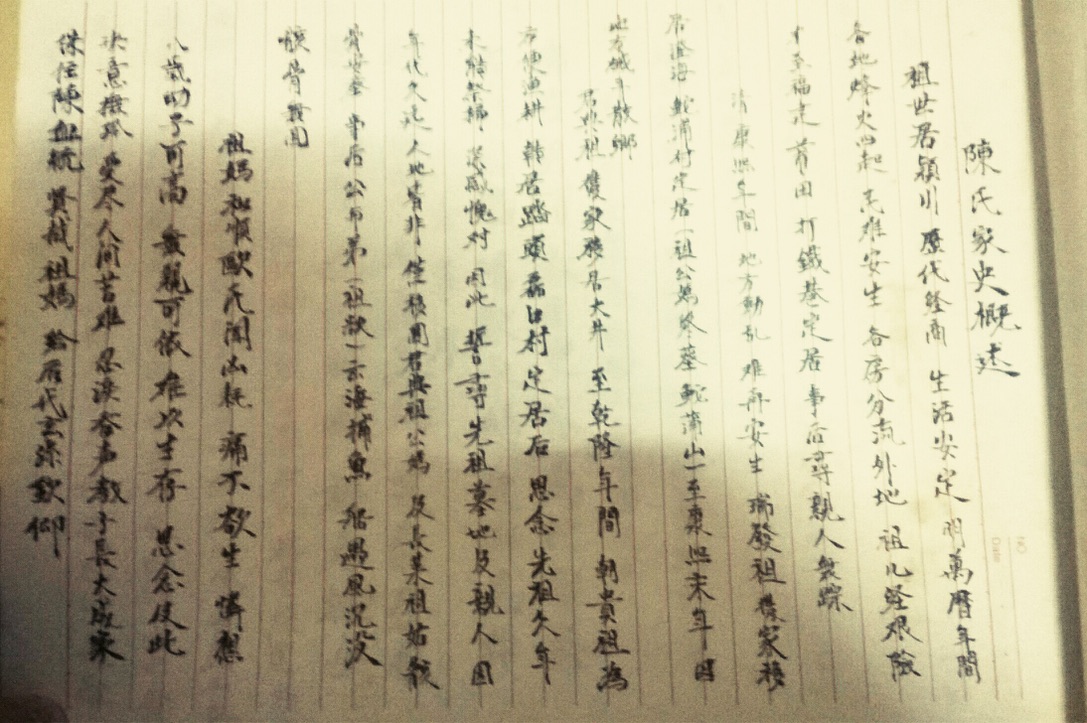 陳氏家史概述
祖世居穎川 歷代経商 生活安定 明萬曆年間
各地烽火四起 民难安生 各房分流外地 祖 経艰險
才至福建莆田 打鐵巷定居 事后尋親人無踪
清康熙年間 地方動乱 难再安生 瑞發祖携家移
居澄海 鮀浦村定居(祖公媽终葬鮀浦山)至康熙末年 因
地方 散鄉
君典祖携家移居大井 至乾隆年間 朝貴祖為
方便漁耕 轉居踏頭磊口村 定居后 思念先祖久年
未能祭掃 甚感愧对 因此 誓尋先祖墓地及親人 因
年代久远 人地皆非 僅移回君典祖公媽 及長某祖姑骸
骨安葬 事后公布弟(祖欲)云海捕魚 船遇風沉没
骸骨難回
祖媽和順歐氏闻凶耗 痛不欲生 憐想
八歳幼子可高 無親可依 难以生存 思念及此
决意撫孤 受尽人间苦难 忍淚吞声 教子長大成家
保住陳血統 賢哉祖媽 给后代玄孫欽仰
NO
Date